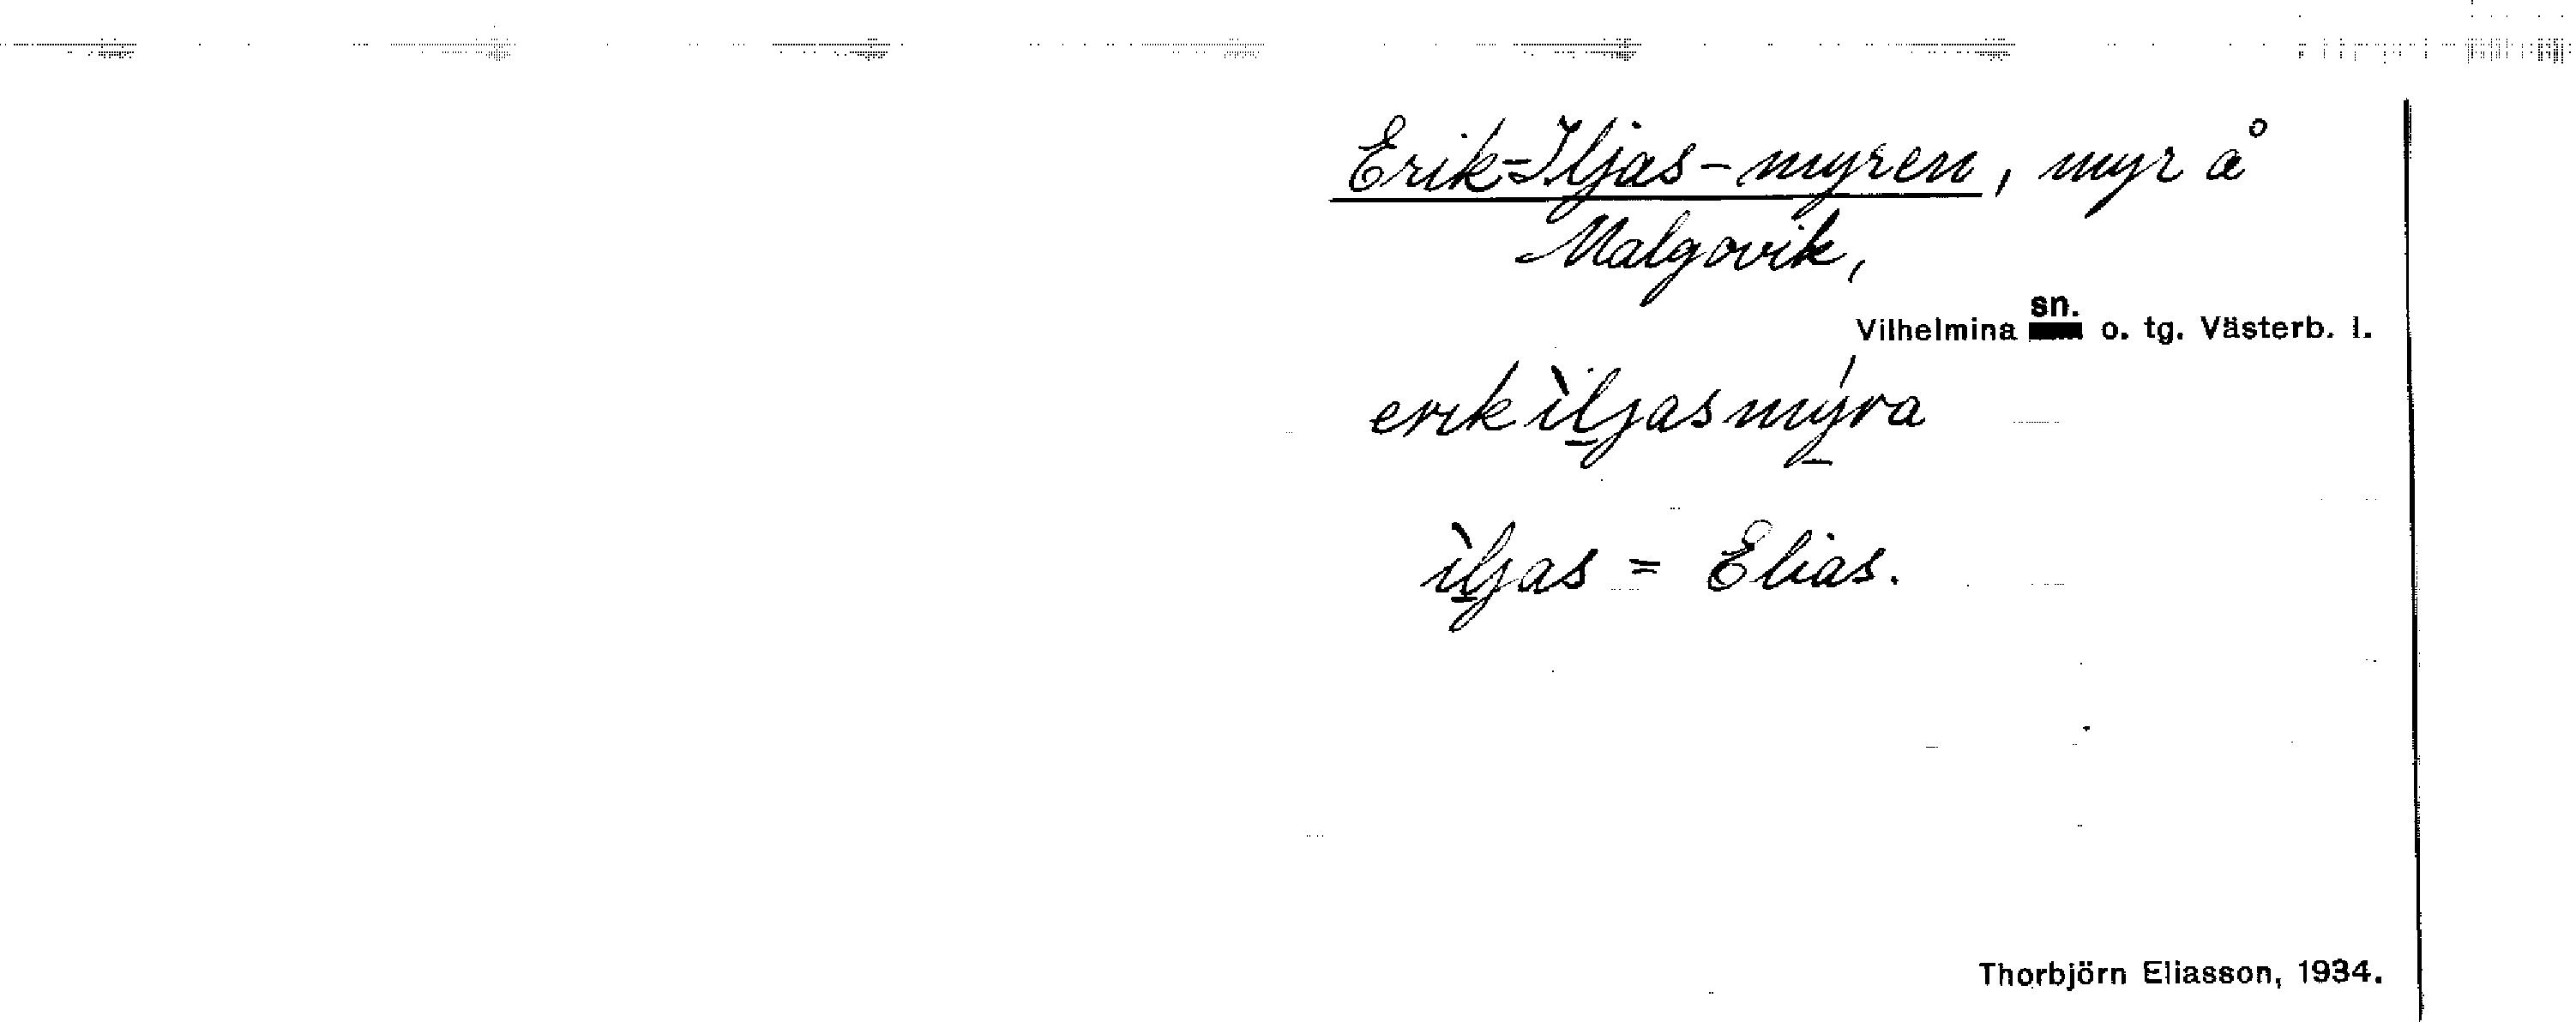 Erik-Iljas-myren, myr å
Malgovik,
Vilhelmina sn. o. tg. Västerb. l.
erik ìljasmýra
ìljas = Elias.
Thorbjörn Eliasson, 1934.